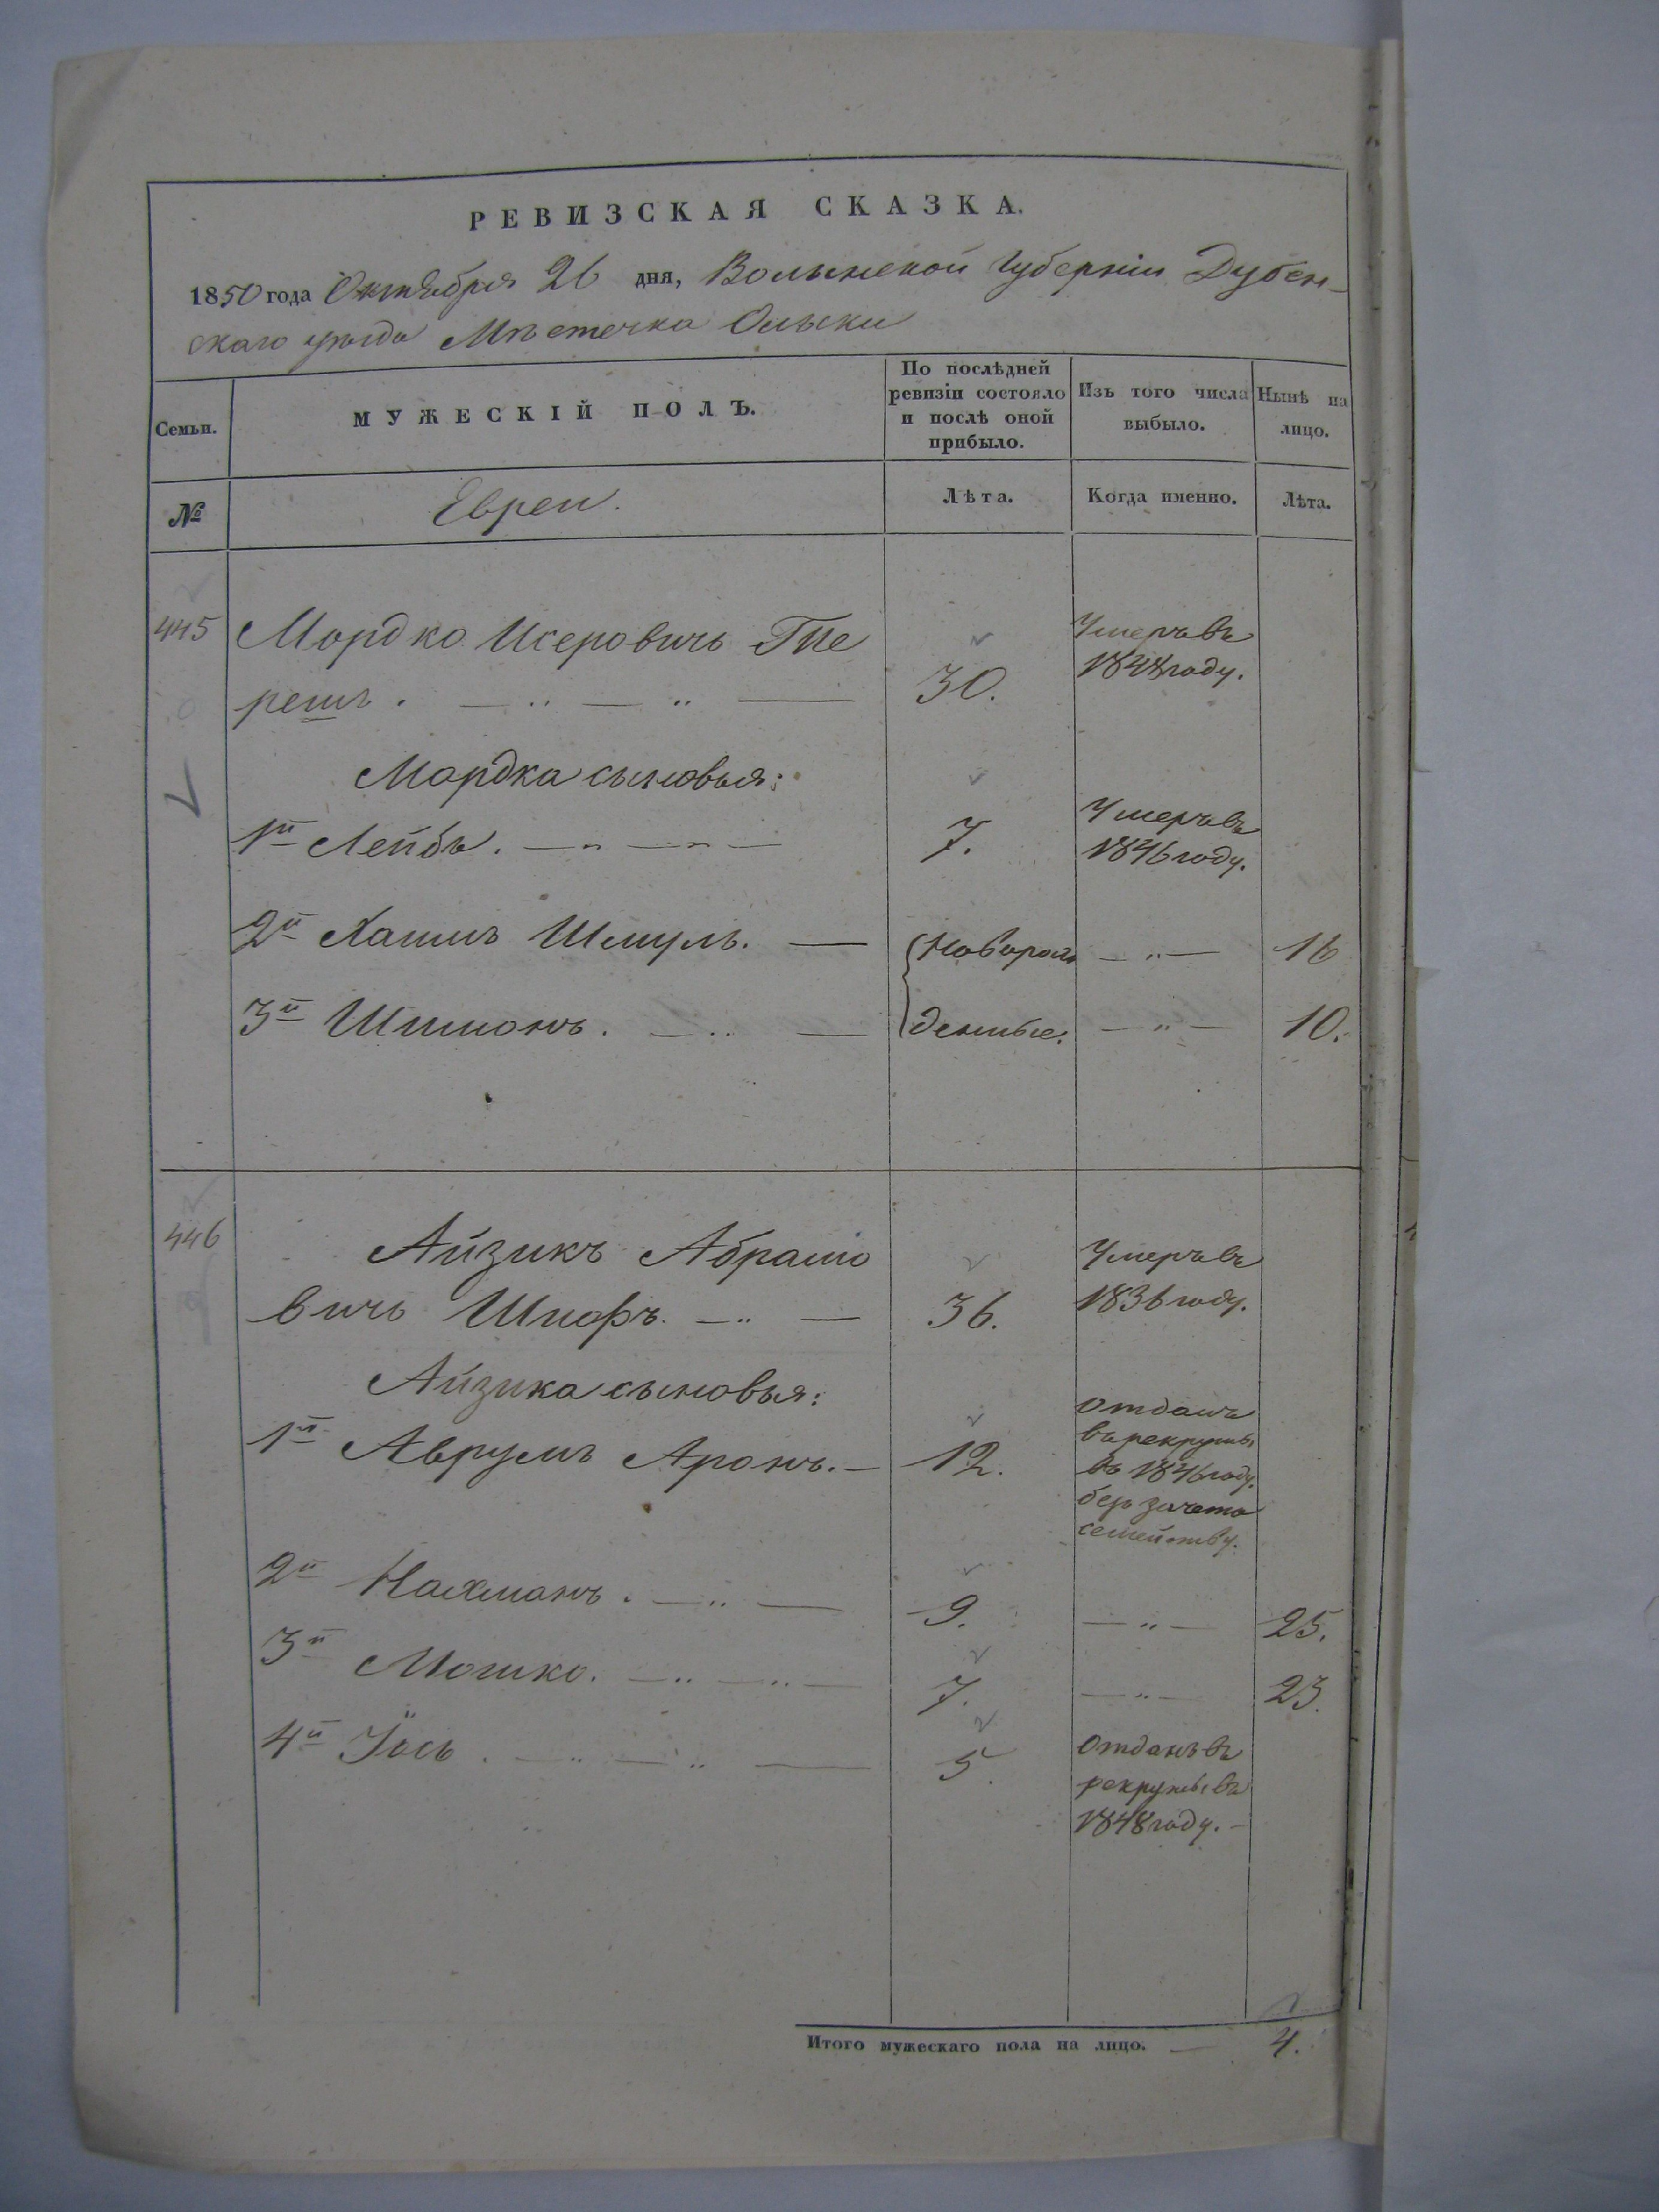 РЕВИЗСКАЯ СКАЗКА.
1850 года Октября 26 дня, Волынской Губерніи Дубен-
скаго уѣзда Мѣстечка Олыки
Семьи.
МУЖЕСКІЙ ПОЛЪ.
По послѣдней ревизіи состояло и послѣ оной прибыло.
Изъ того числа выбыло.
Нынѣ на лицо.
№
Евреи.
Лѣта.
Когда именно.
Лѣта.
445 Мордко Исеровичь Пе
решъ. 30. Умеръ въ 1848 году.
Мордка сыновья:
1й Лейба. 7. Умеръ въ 1846 году.
2й Хаимъ Шмуль. Новорож 16
3й Шимонъ. денные. 10.
446 Айзикъ Абрамо
вичь Шнофъ. 36. Умеръ въ 1836 году.
Айзика сыновья:
1й Аврумъ Аронъ. 12. Отданъ
въ рекруты
въ 1846 году.
безъ зачета
семейству.
2й Нахманъ. 9. 25.
3й Мошко. 7. 23.
4й Іось. 5. Отданъ въ
рекруты въ
1848 году.
Итого мужескаго пола на лицо. 4.